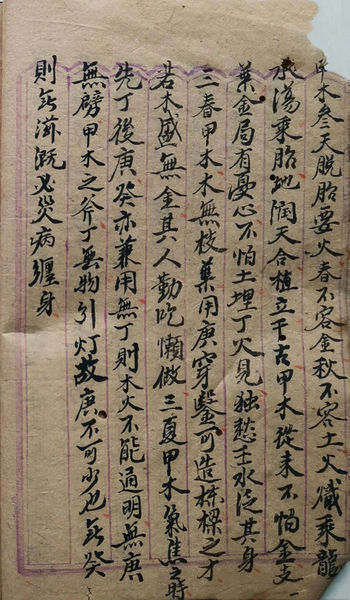 甲木叁天脱胎要火春不容金秋不容土火熾乘龍
水蕩乘胎地潤天合植立千古甲木從来不怕金支
葉金局有憂心不怕土埋丁火見独愁壬水泛其身
三春甲木木無枝葉用庚穿鑿可造棟樑之才
若木盛無金其人勤吃懶做三夏甲木氣焦之時
先丁後庚癸亦兼用無丁則木火不能通明無庚
無劈甲木之斧丁無物引灯故庚不可少也無癸
則無滋溉必災病纏身